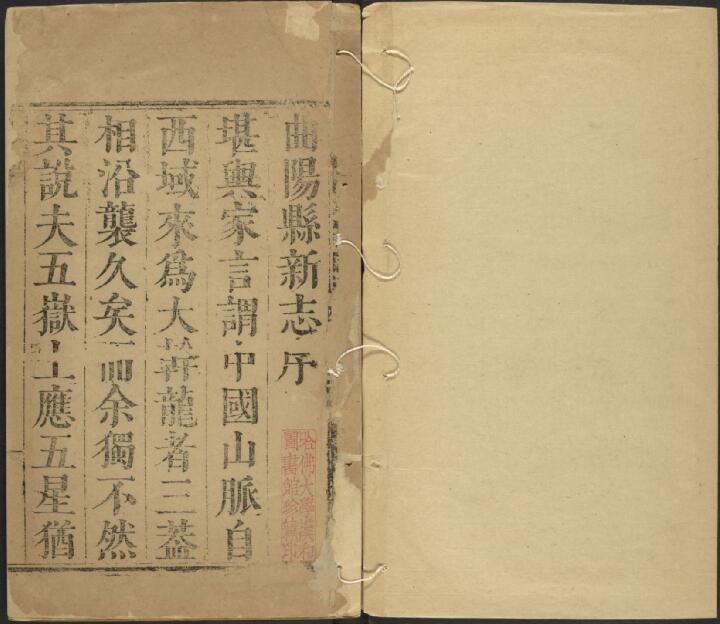 曲陽縣新志序
堪輿家言謂中國山脈自
西域來為大幹龍者三蓋
相沿襲久矣而余獨不然
其說夫五嶽上應五星猶
哈佛大學漢和
圖書館珍藏印